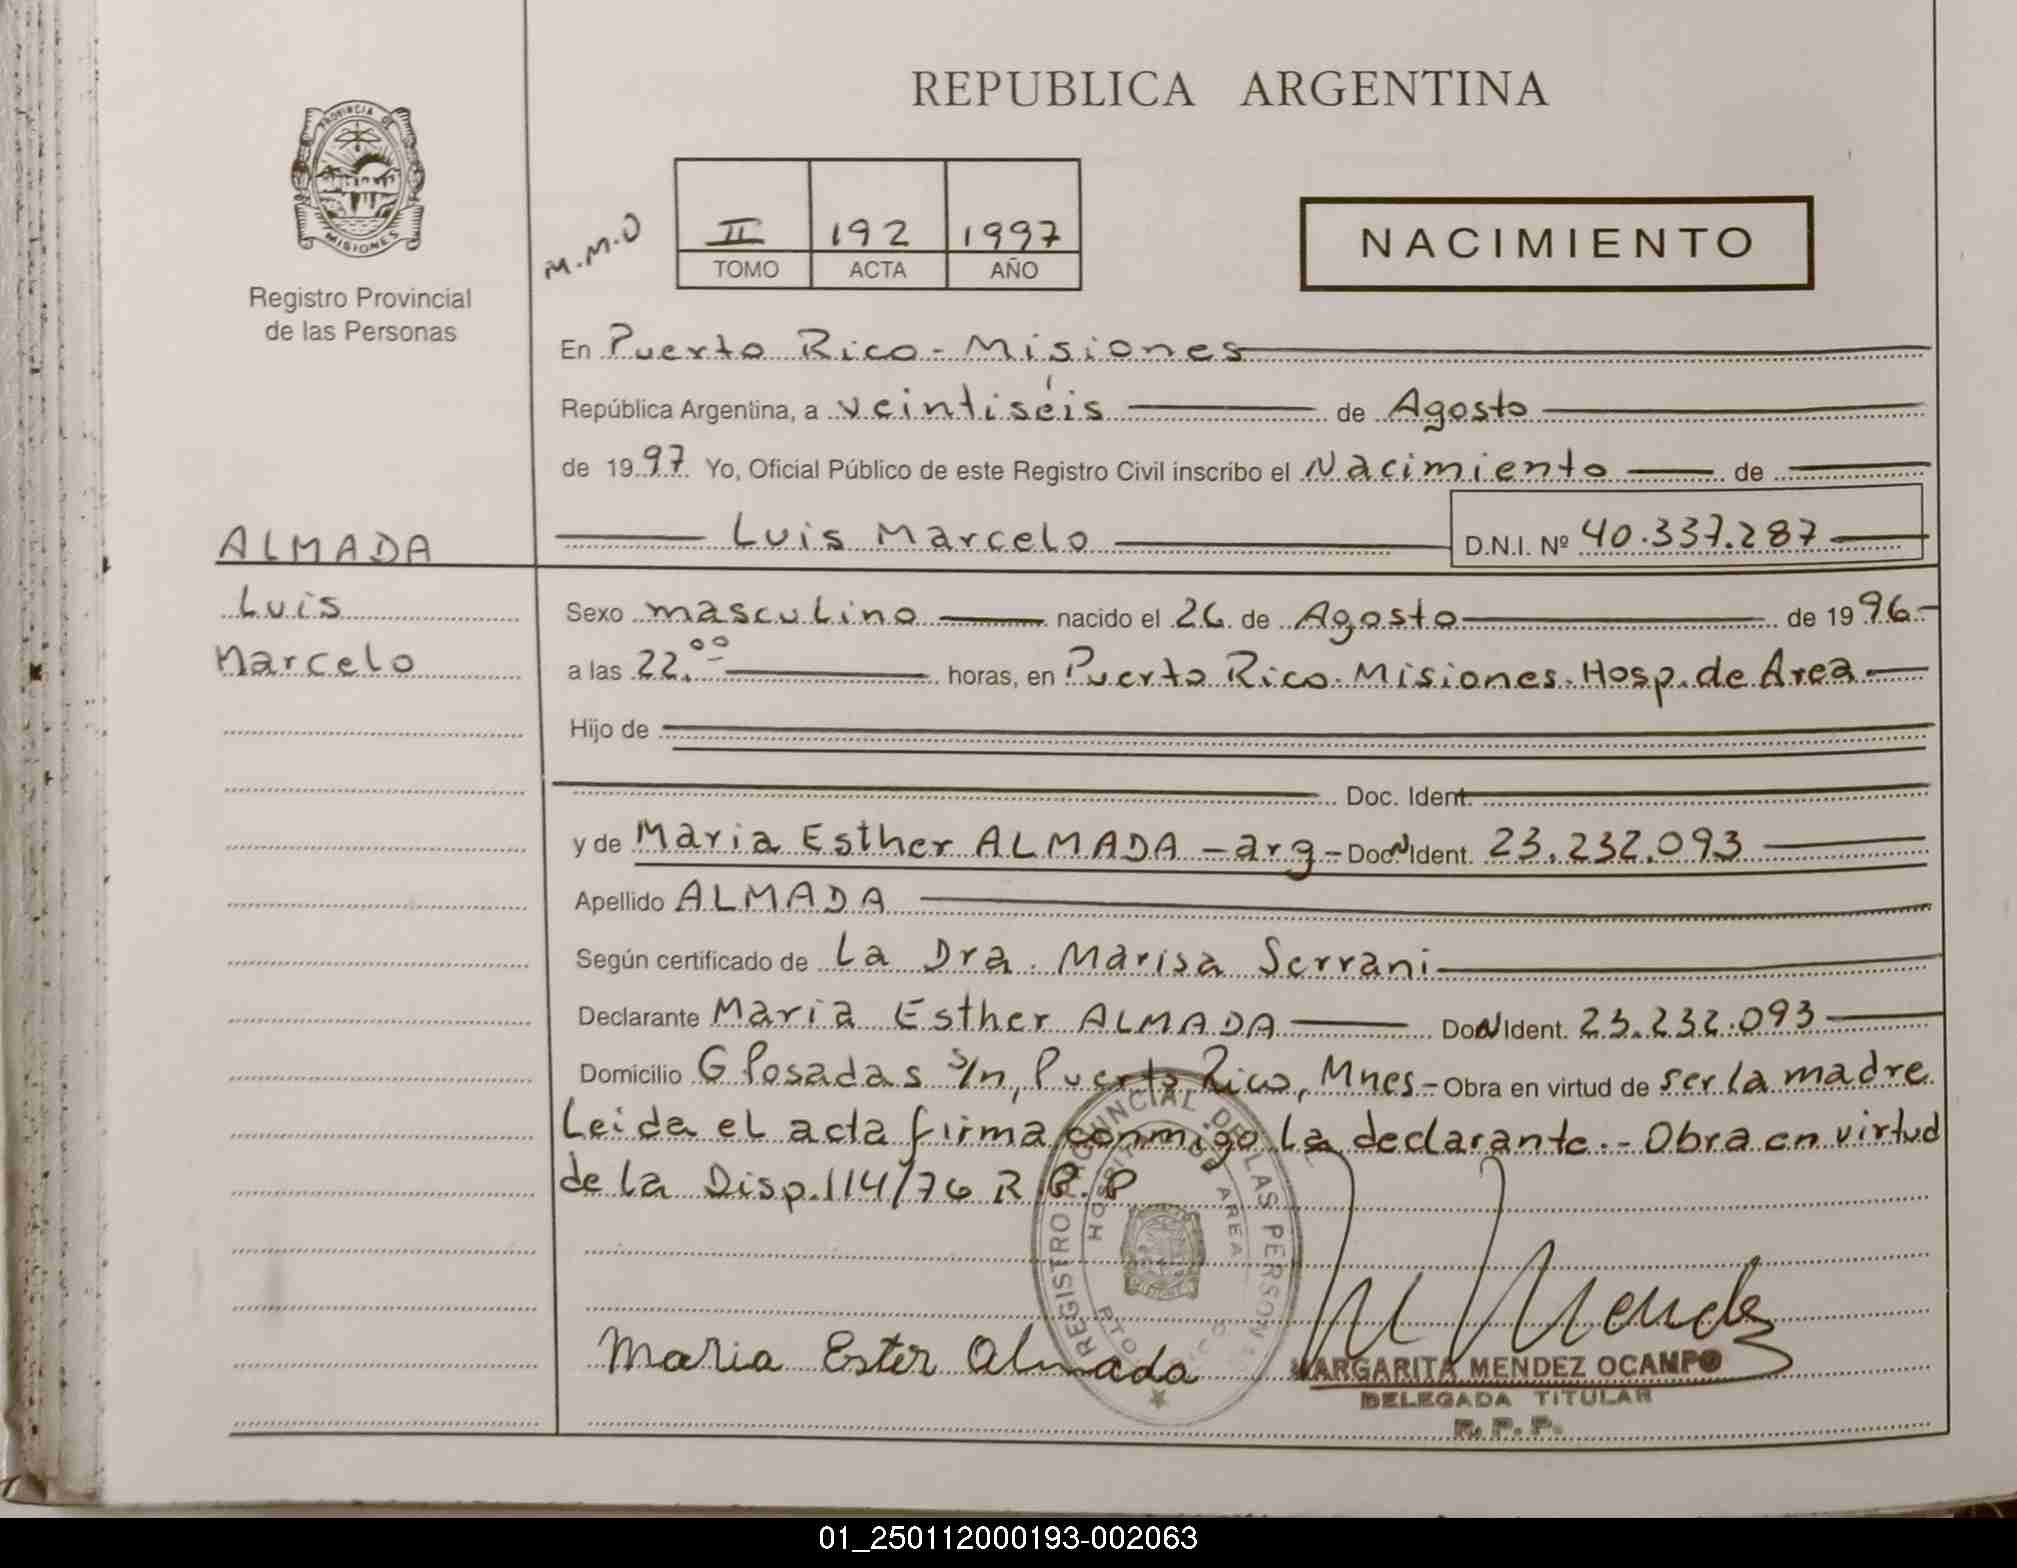 REPUBLICA ARGENTINA
PROVINCIA DE
MISIONES
Registro Provincial
de las Personas
M.M.O
II 192 1997
TOMO ACTA AÑO
NACIMIENTO
En Puerto Rico - Misiones
República Argentina, a veintiséis de Agosto
de 1997 Yo, Oficial Público de este Registro Civil inscribo el Nacimiento de
ALMADA
Luis Marcelo D.N.I. Nº 40.337.287
Luis
Marcelo
Sexo masculino nacido el 26 de Agosto de 1996.-
a las 22.00 horas, en Puerto Rico. Misiones. Hosp. de Area
Hijo de
Doc. Ident.
y de Maria Esther ALMADA - arg - DocN Ident. 23.232.093
Apellido ALMADA
Según certificado de La Dra. Marisa Serrani
Declarante Maria Esther ALMADA DoN Ident. 23.232.093
Domicilio G Posadas s/n, Puerto Rico, Mnes - Obra en virtud de ser la madre
Leida el acta firma conmigo la declarante. - Obra en virtud
de la Disp. 114/76 R.P.P
REGISTRO PROVINCIAL DE LAS PERSONAS
HOSPITAL DE AREA
PTO. RICO
Maria Ester Almada
M Mendez
MARGARITA MENDEZ OCAMPO
DELEGADA TITULAR
R. P. P.
01_250112000193-002063